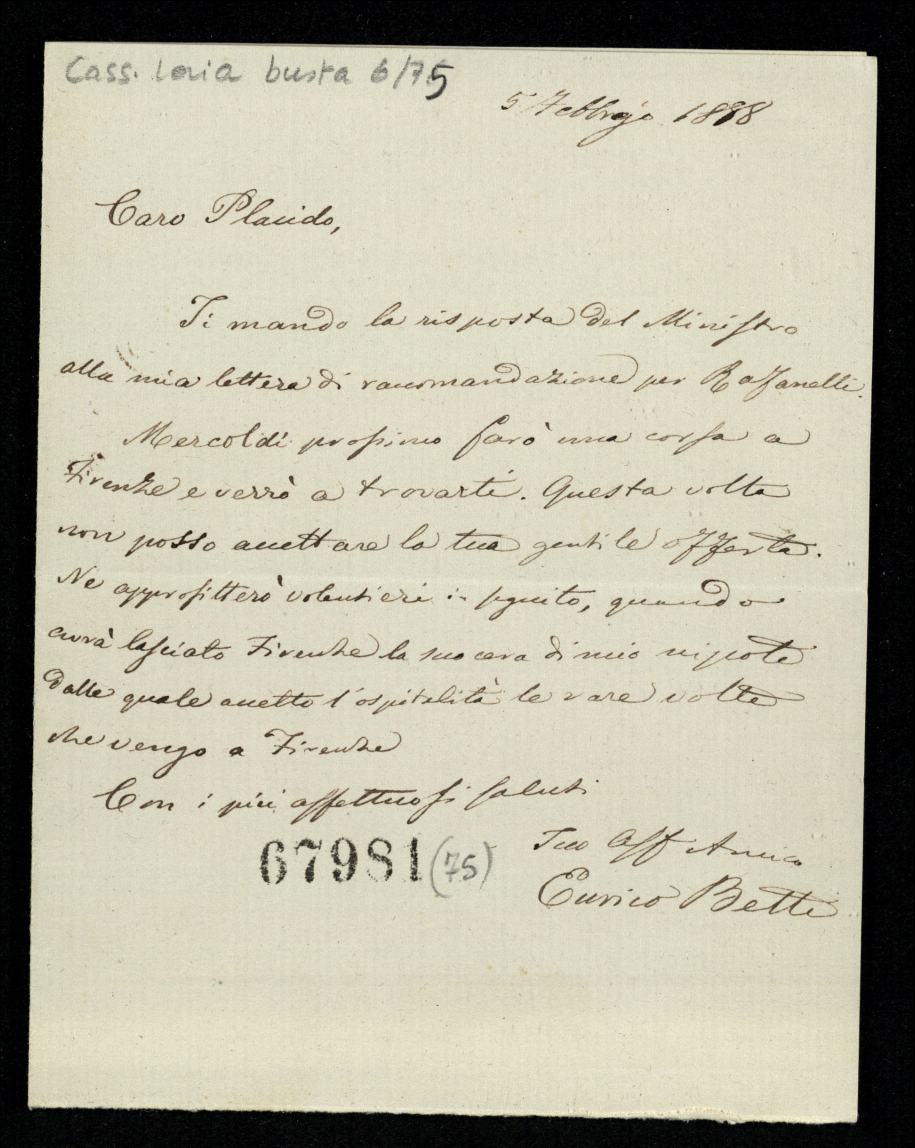 Cass. Loria busta 6/75
5 Febbrajo 1888
Caro Placido,
Ti mando la risposta del Ministro
alla mia lettera di raccomandazione per Razanelli.
Mercoldi prossimo farò una corsa a
Firenze e verrò a trovarti. Questa volta
non posso accettare la tua gentile offerta.
Ne approfitterò volentieri in seguito, quando
avrà lasciato Firenze la suocera di mio nipote
dalla quale accetto l'ospitalità le rare volte
che vengo a Firenze
Con i più affettuosi saluti
Tuo Aff Amico
67981 (75)
Enrico Betti